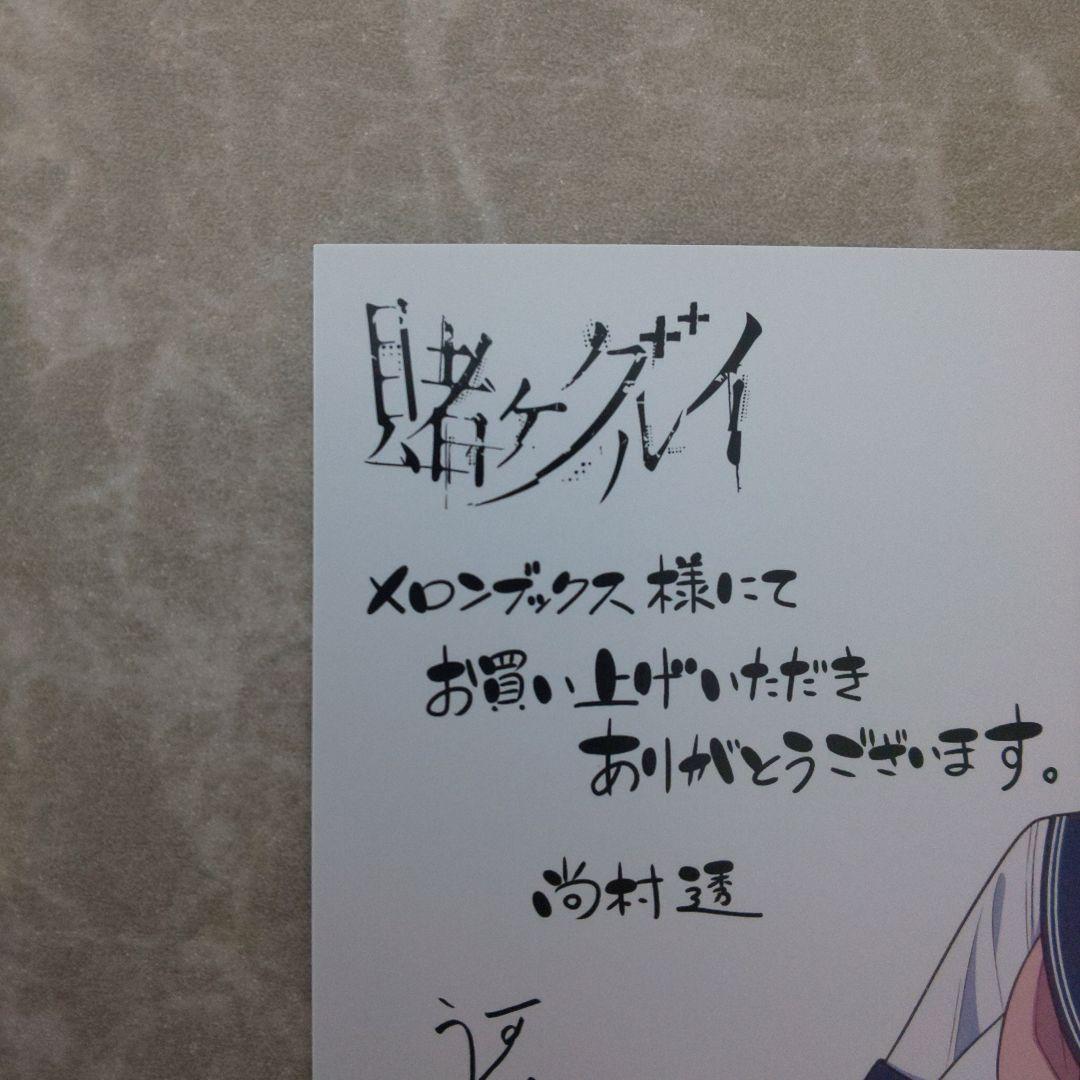 賭ケグルイ
メロンブックス様にて
お買い上げいただき
ありがとうございます。
尚村透
うす